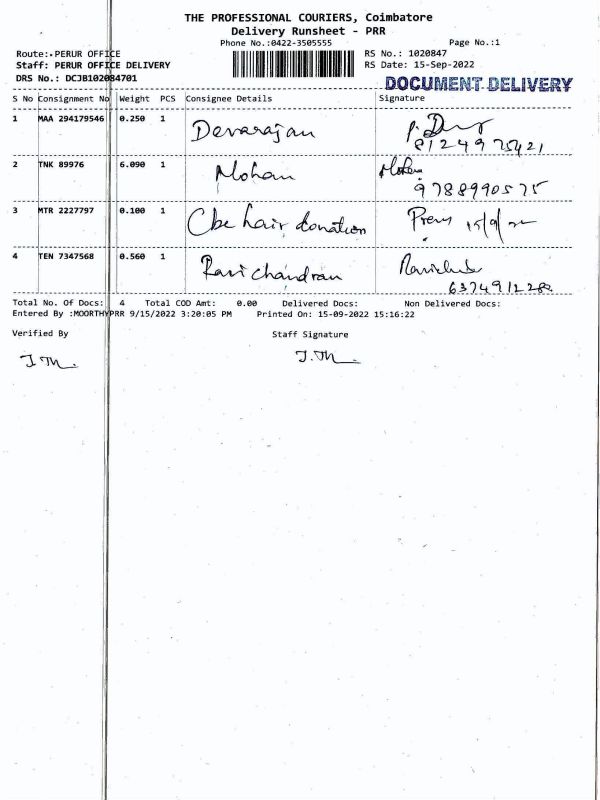 THE PROFESSIONAL COURIERS, Coimbatore
Delivery Runsheet - PRR
Phone No.:0422-3505555 Page No.:1
Route: PERUR OFFICE RS No.: 1020847
Staff: PERUR OFFICE DELIVERY RS Date: 15-Sep-2022
DRS No.: DCJB102084701 DOCUMENT DELIVERY
S No Consignment No Weight PCS Consignee Details Signature
1 MAA 294179546 0.250 1 Devarajan
2 TNK 89976 6.090 1 Mohan Mohan
9788990575
3 MTR 2227797 0.100 1 Cbe hair donation Prem 15/9/22
4 TEN 7347568 0.560 1 Ravichandran
Total No. Of Docs: 4 Total COD Amt: 0.00 Delivered Docs: Non Delivered Docs:
Entered By :MOORTHYPRR 9/15/2022 3:20:05 PM Printed On: 15-09-2022 15:16:22
Verified By Staff Signature